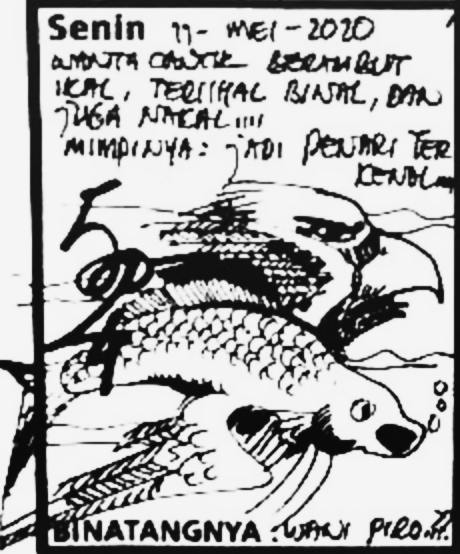 Senin 11- MEI - 2020
WANITA CANTIK BERAMBUT
IKAL, TERLIHAL BINAL, DAN
JUGA NAKAL....
MIMPINYA: JADI PENARI TER
KENAL...
BINATANGNYA :